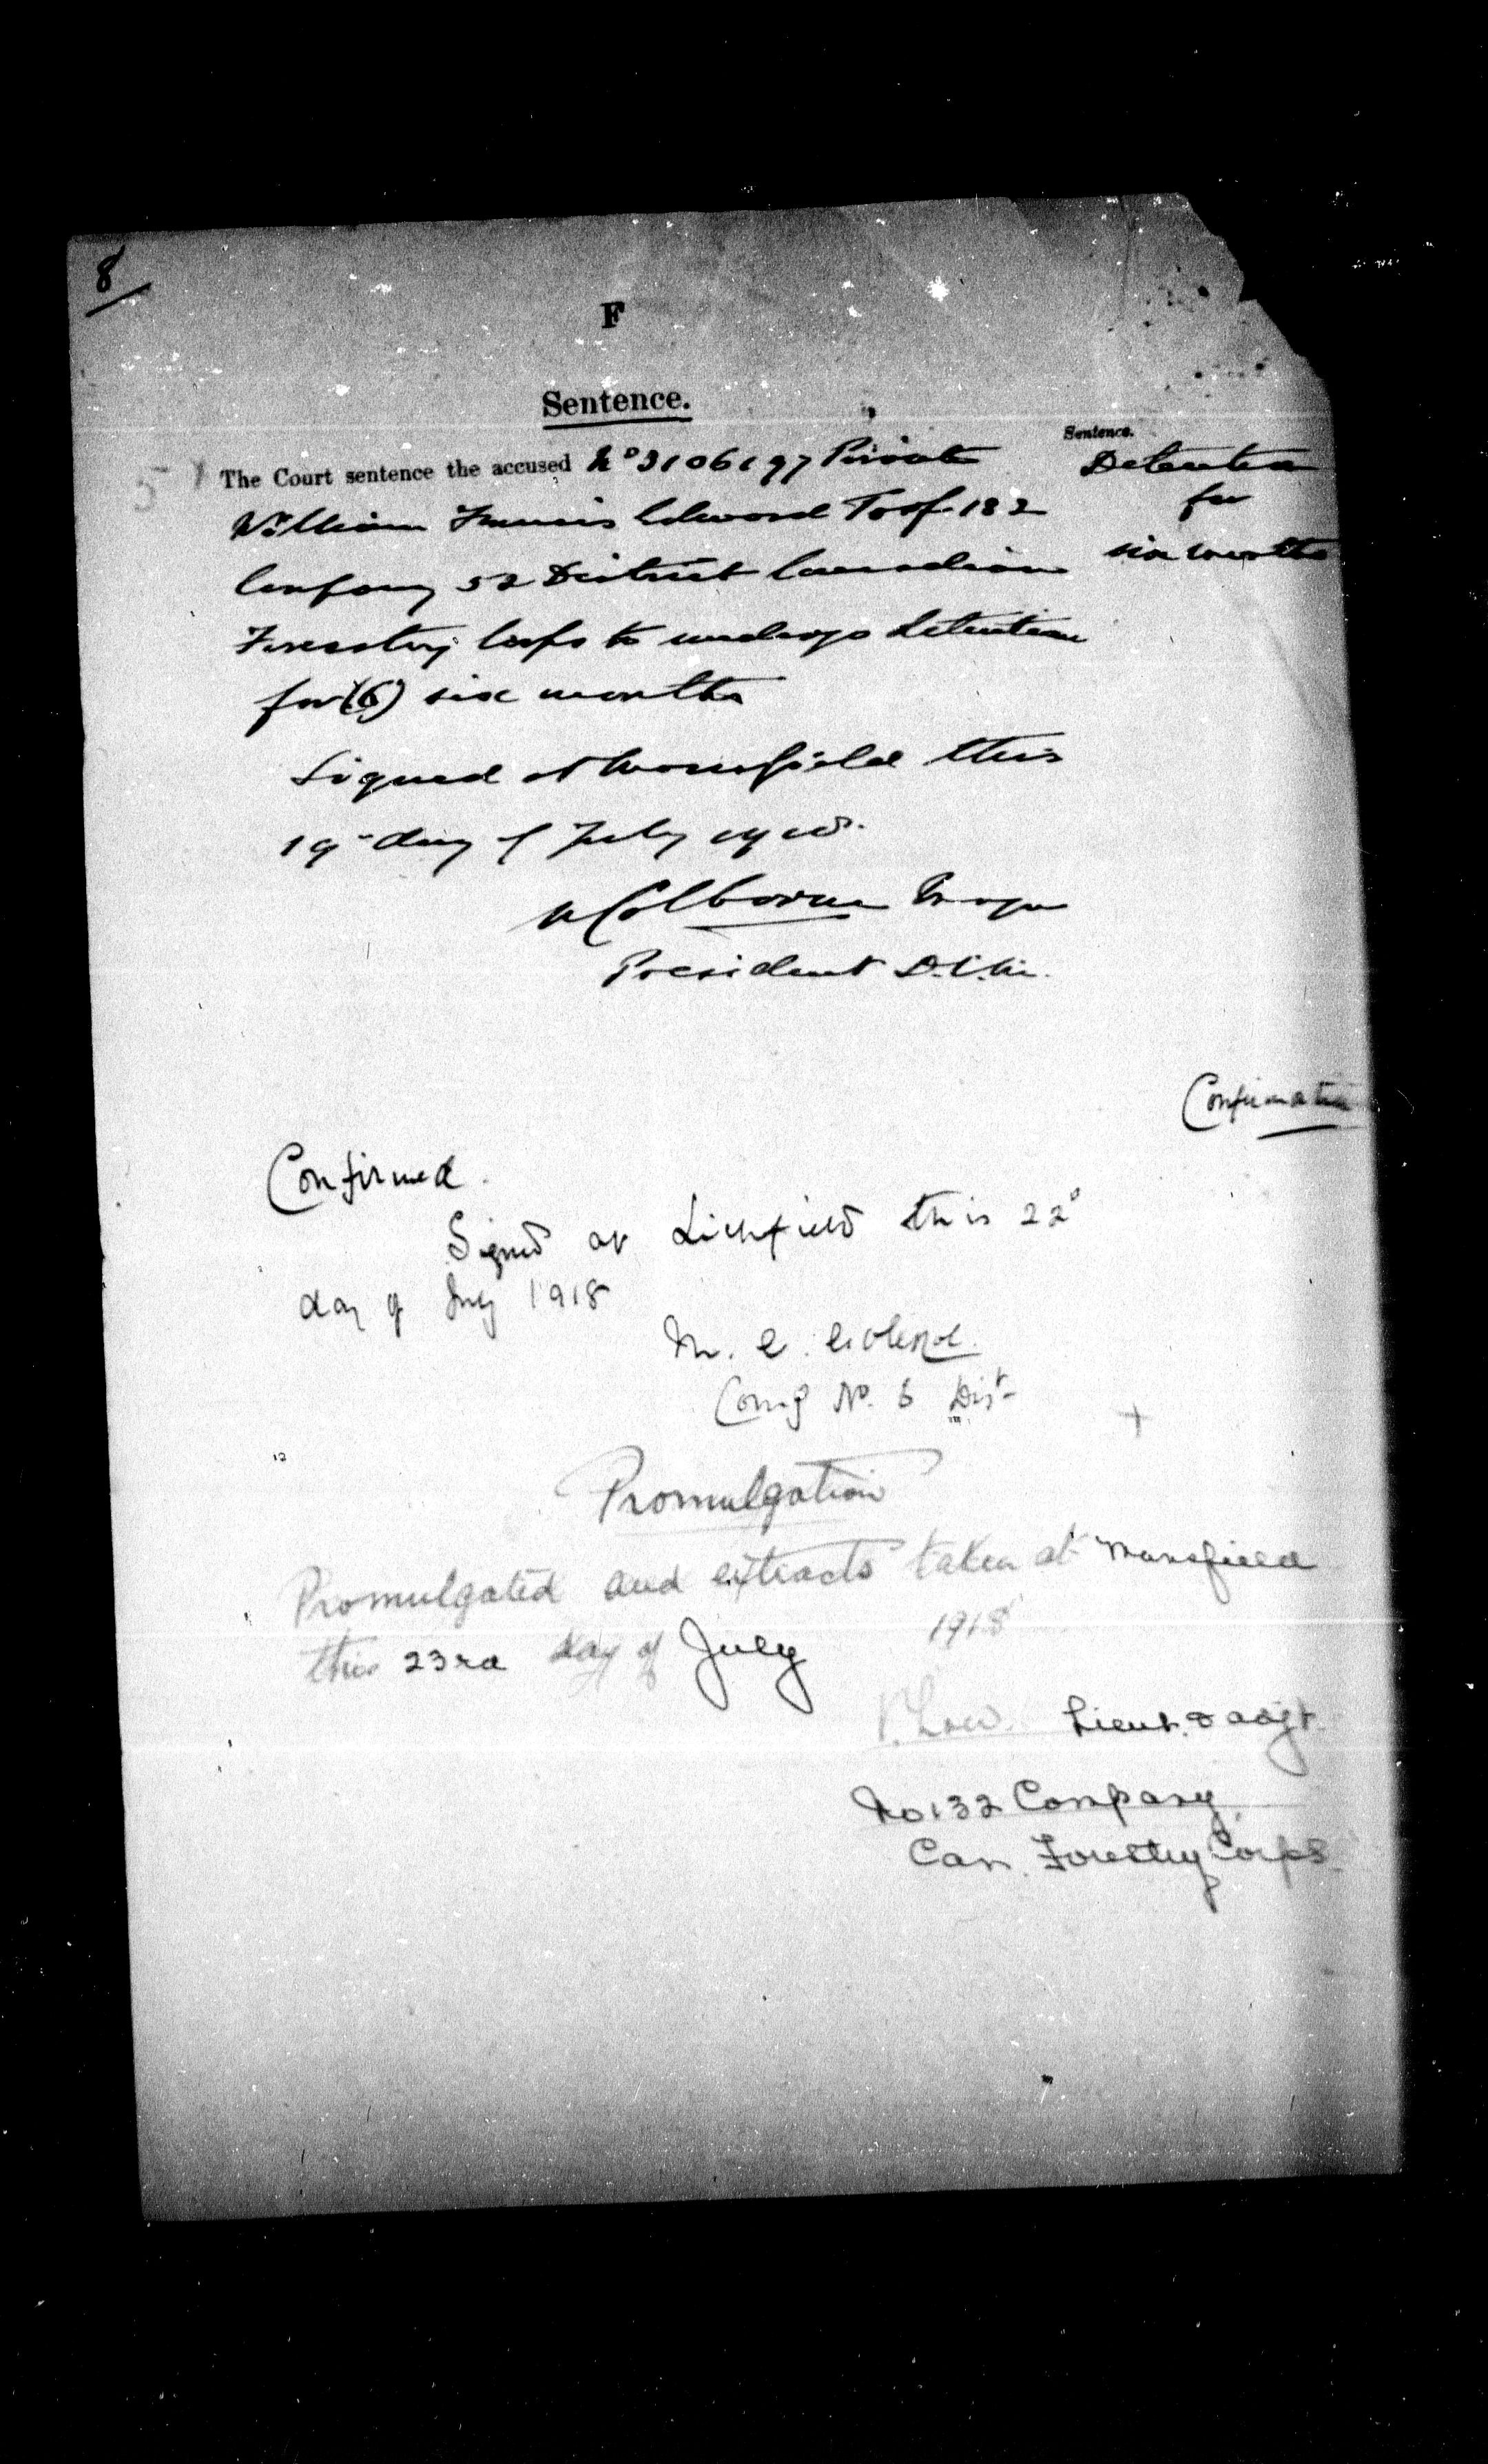 8
F
Sentence.
The Court sentence the accused No 3106197 Private
William Francis Edward Toof 132
Company 52 District Canadian
Forestry Corps to undergo detention
for (6) six months
Sentence.
Detention
for
six months
Signed at Mansfield this
19th day of July 1918.
Colborne Major
President D.C.M.
Confirmation
Confirmed.
Signed at Lichfield this 22d
day of July 1918
M. E.
Comg No. 6 Dist
Promulgation
Promulgated and extracts taken at Mansfield
this 23rd day of July 1918
Low. Lieut. & adjt.
No 132 Company
Can. Forestry Corps